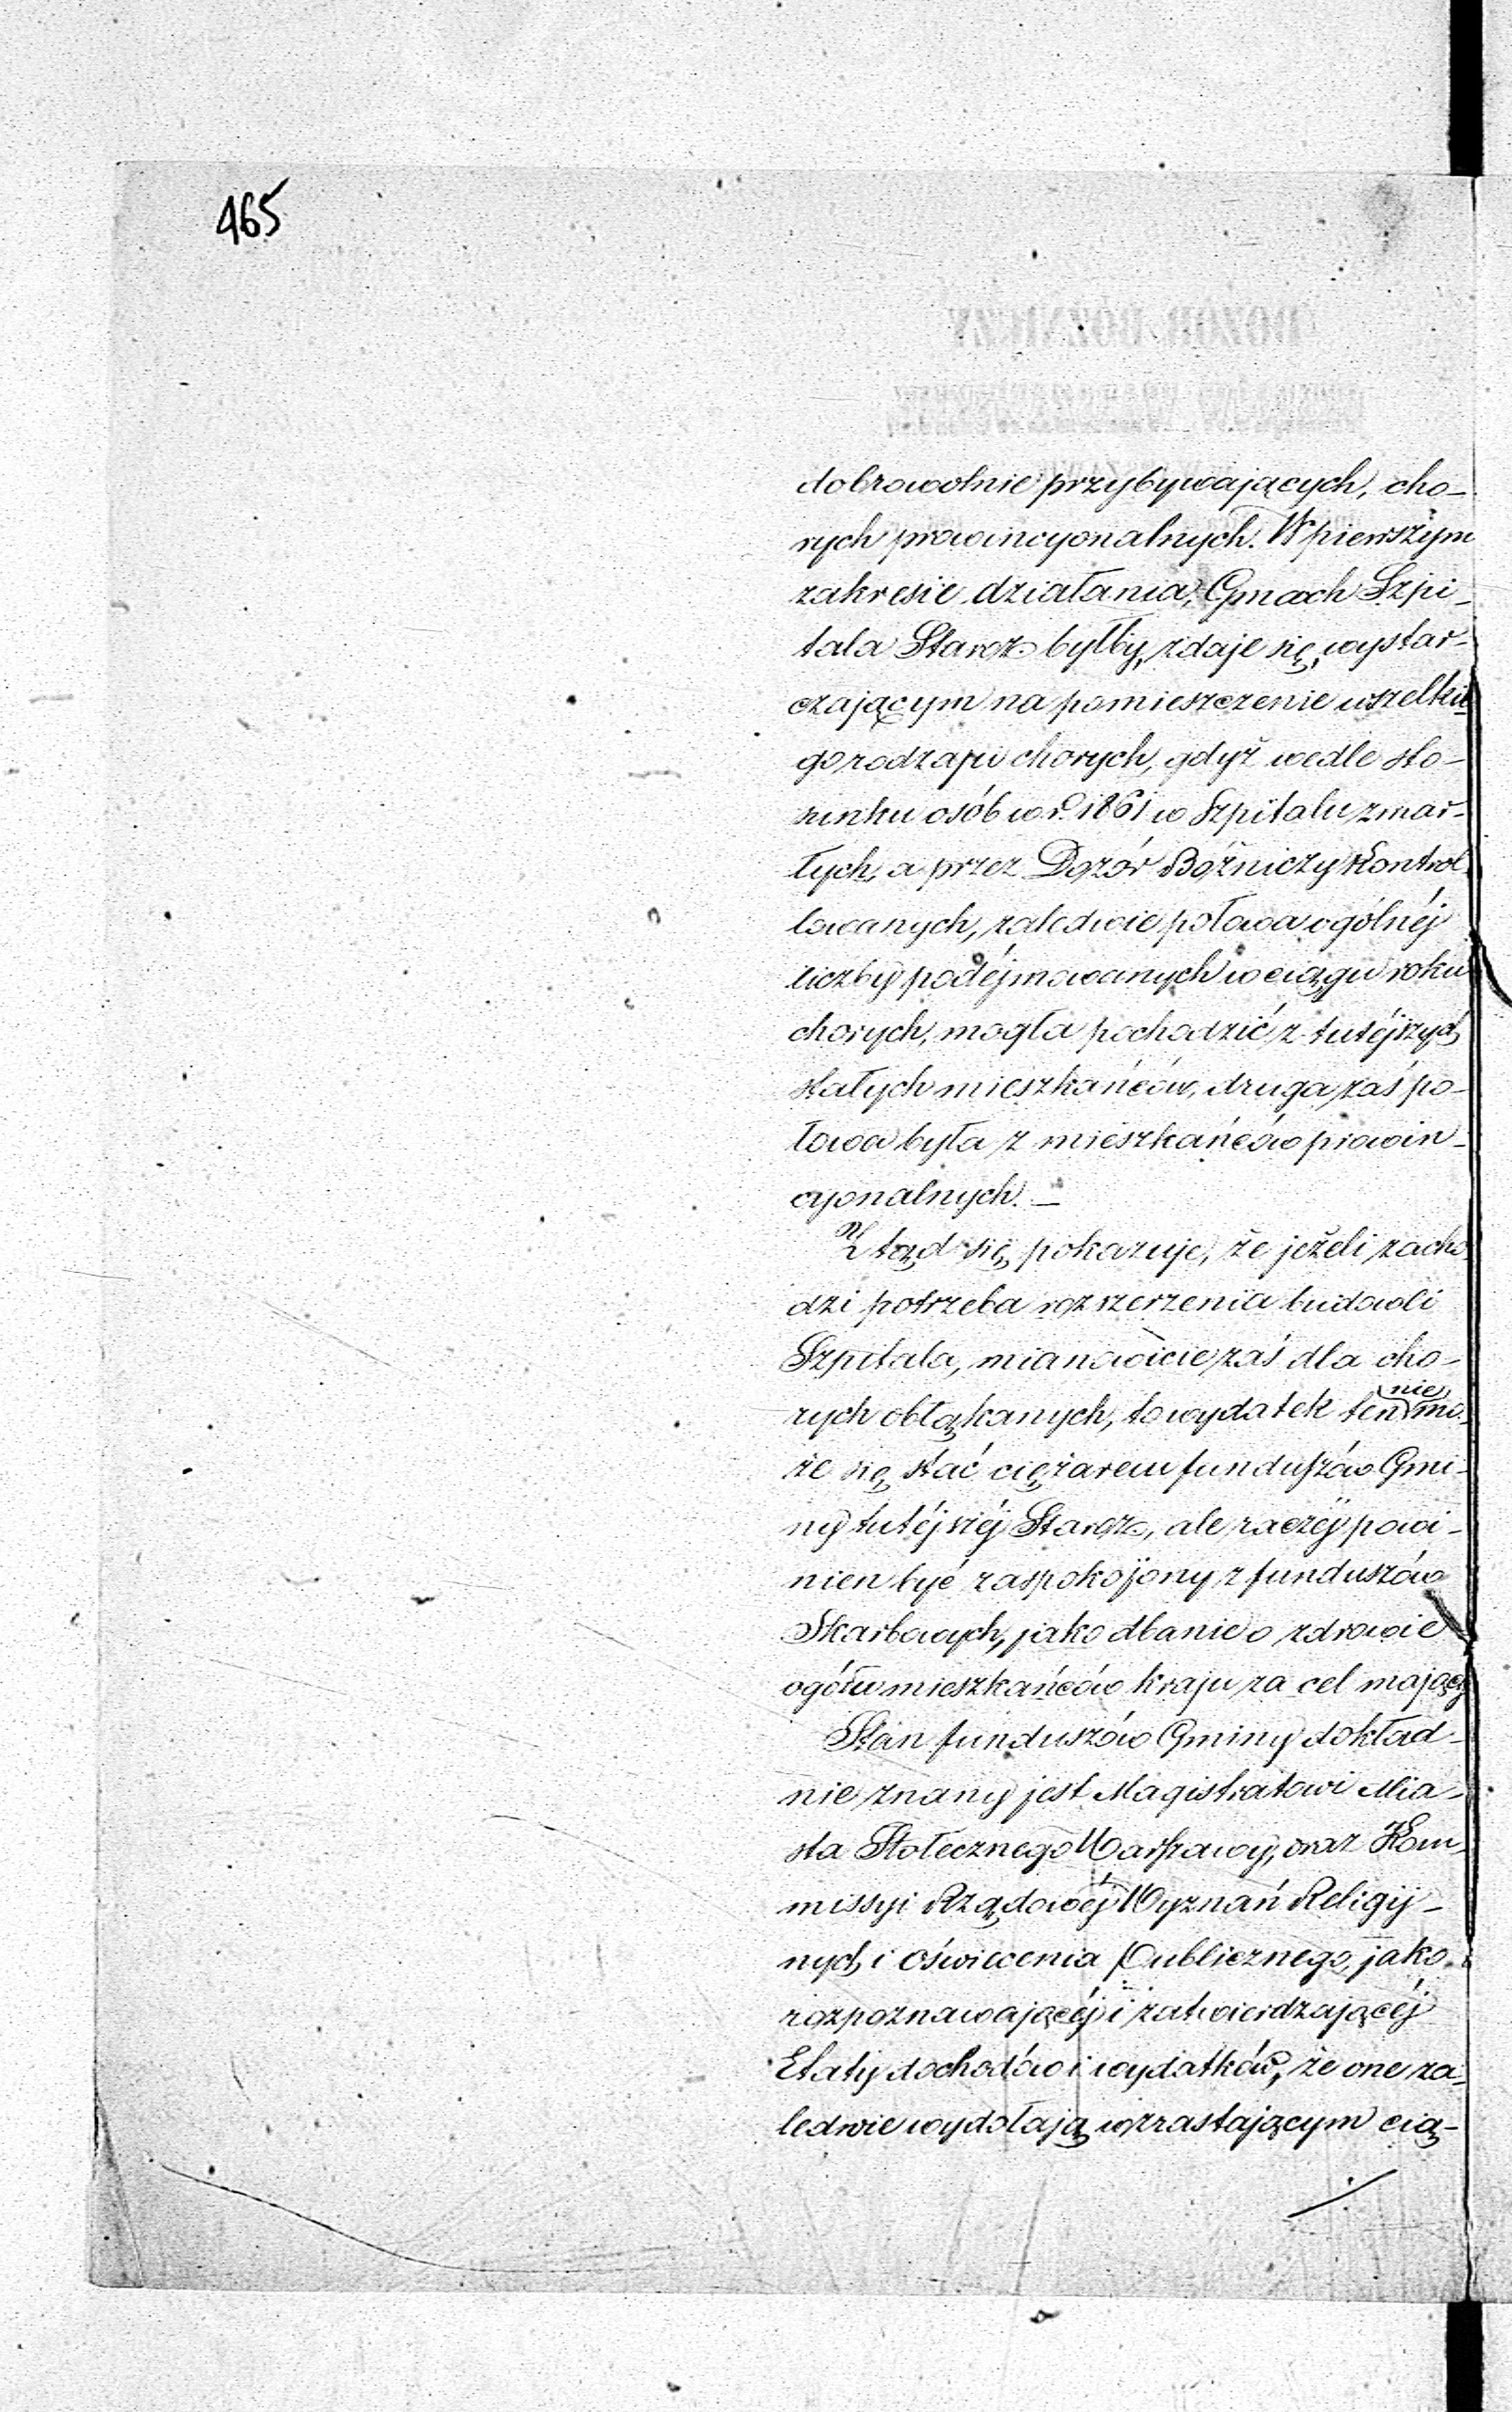 465
dobrowolnie przybywających, cho-
rych prowincyonalnych. W pierwszym
zakresie działania, Gmach Szpi-
tala Staroz. byłby, zdaje się, wystar-
czającym na pomieszczenie wszelkie
go rodzaju chorych, gdyż wedle sto-
sunku osób w r. 1861 w Szpitalu zmar-
łych, a przez Dozór Bóżniczy kontrol
lowanych, zaledwie połowa ogólnéj
liczby podéjmowanych w ciągu roku
chorych, mogła pochodzić z tutéjszych
stałych mieszkańców, druga zaś po-
łowa była z mieszkańców prowin-
cyonalnych. —
Ztąd się pokazuje, że jeżeli zacho
dzi potrzeba rozszerzenia budowli
Szpitala, mianowicie zaś dla cho-
rych obłąkanych, to wydatek ten nie mo-
że się stać ciężarem funduszów Gmi-
ny tutéjszéj Staroz., ale raczéj powi-
nien być zaspokojony z funduszów
Skarbowych, jako dbanie o zdrowie
ogółu mieszkańców kraju za cel mający
Stan funduszów Gminy dokład-
nie znany jest Magistratowi Mia-
sta Stołecznego Warszawy, oraz Kom-
missyi Rządowéj Wyznań Religij-
nych i Oświecenia Publicznego, jako
rozpoznawającéj i zatwierdzającéj
Etaty dochodów i wydatków, że one za-
ledwie wydołają wzrastającym cią-